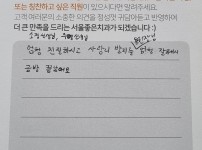 또는 칭찬하고 싶은 직원이 있으시다면 알려주세요.
고객 여러분의 소중한 의견을 철성껏 귀담아듣고 반영하여
더 큰 만족을 드리는 서울좋은치과가 되겠습니다 :)
선생님,
엄청 친절하시고 사랑니 발치를 잘해주시
금방 끝났어요